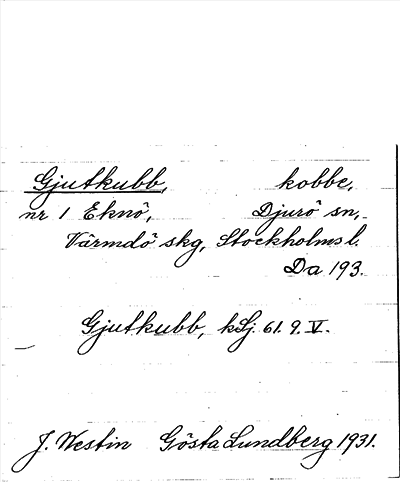 Gjutkubb, kobbe,
nr 1 Eknö, Djurö sn,
Värmdö skg, Stockholms l.
Da 193.
Gjutkubb, kSj. 61. 9. V.
J. Westin Gösta Lundberg 1931.